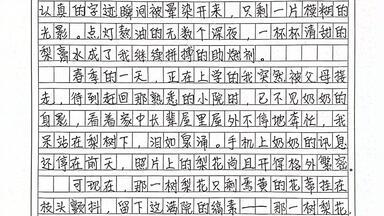 认真的字迹瞬间被晕染开来，只剩一片模糊的
光影。点灯熬油的无数个深夜，一杯杯清甜的
梨膏水成了我继续拼搏的助燃剂。
春季的一天，正在上学的我突然被父母接
走，待到赶回那熟悉的小院时，已不见奶奶的
身影，看着家中长辈屋里屋外不停地奔忙，我
呆站在梨树下，泪如泉涌。手机上奶奶的讯息
还停在前天，照片上的梨花尚且开得格外繁密。
可现在，那一树梨花只剩焉黄的花萼挂在
枝头颤抖，留下这满院的缟素——那一树梨花